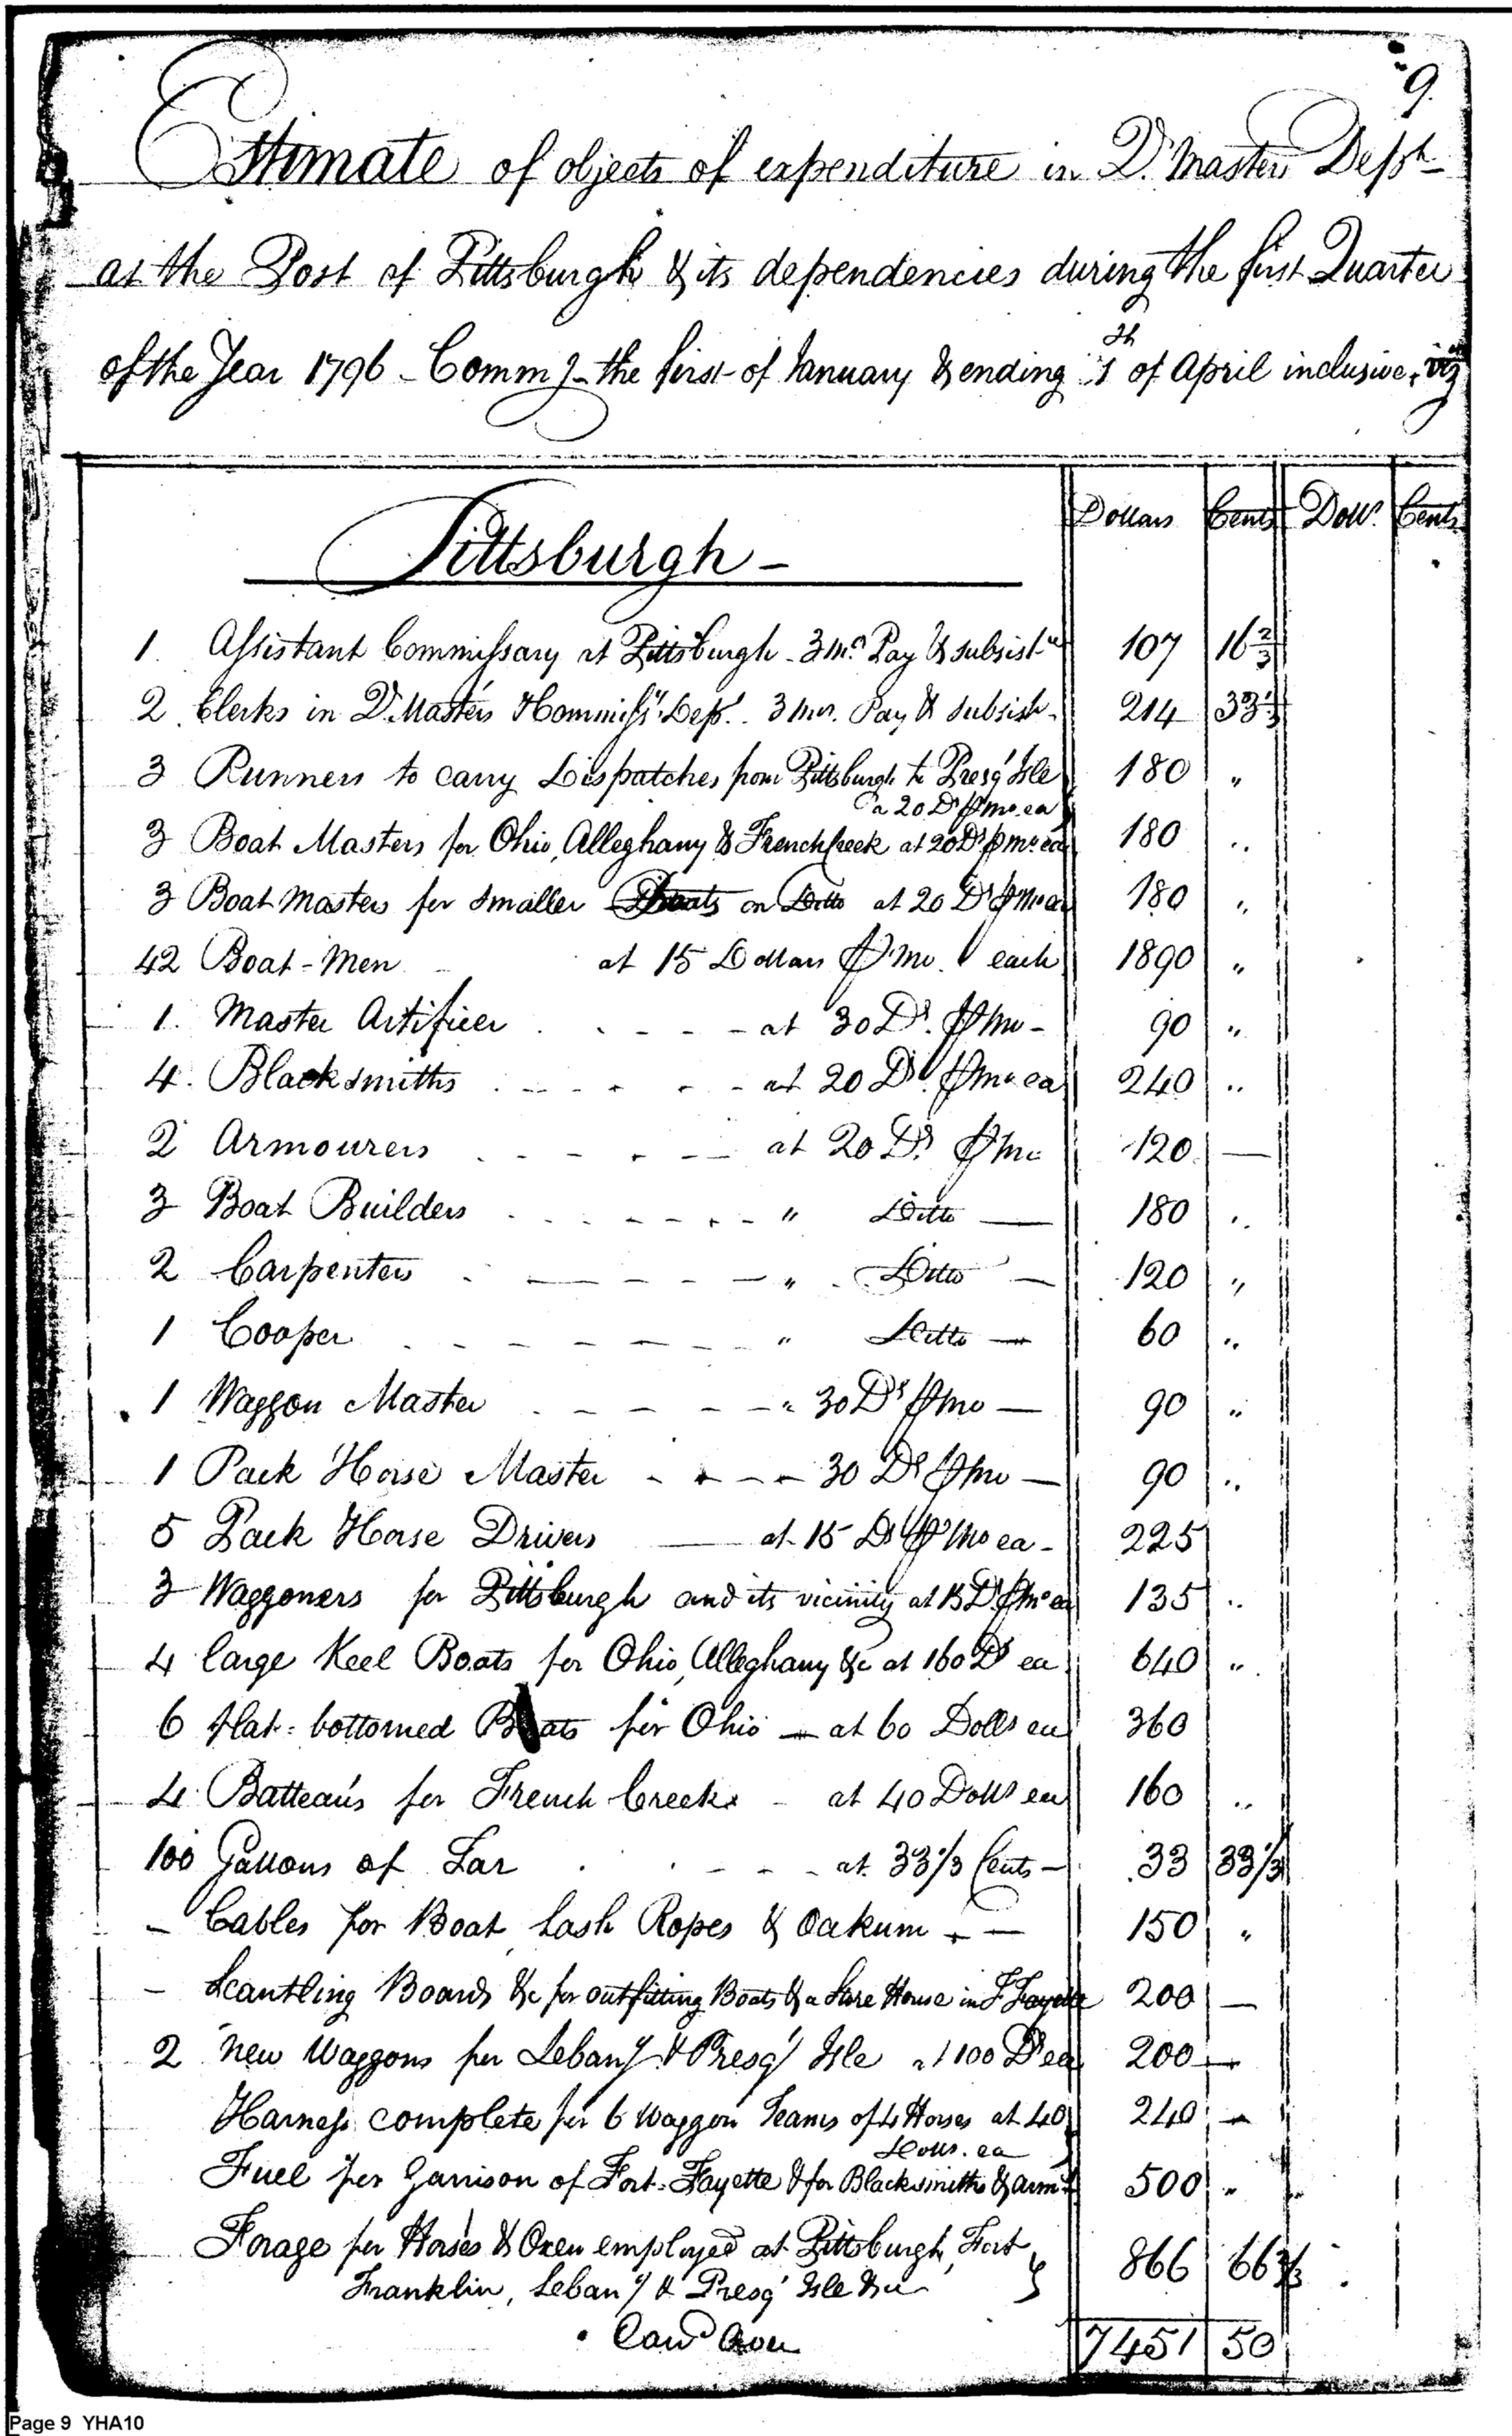 9.
Estimate of objects of expenditure in Q. Masters Dept
at the Post of Pittsburgh & its dependencies during the first Quarter
of the Year 1796 - Commg the first of January & ending 1st of April inclusive, viz
Dollars Cents Dolls. Cents
Pittsburgh -
1. Assistant Commissary at Pittsburgh - 3 mos Pay & subsistce 107 16 2/3
2 Clerks in Q. Masters & Commissy Dept. 3 mos. Pay & subsist. 214 33 1/3
3 Runners to carry Dispatches from Pittsburgh to Presq' Isle 180 "
a 20 Ds ⅌ mo. ea
3 Boat Masters for Ohio, Alleghany & French Creek at 20 Ds ⅌ mo ea 180 "
3 Boat Masters for smaller Boats on Ditto at 20 Ds ⅌ mo ea 180 "
42 Boat-Men at 15 Dollars ⅌ mo. each 1890 "
1. Master Artificer - - - at 30 Ds. ⅌ mo - 90 "
4. Blacksmiths - - - - at 20 Ds. ⅌ mo ea 240 "
2 Armourers - - - - at 20 Ds. ⅌ mo 120 —
3 Boat Builders - - - - " Ditto — 180 "
2 Carpenters - - - - " Ditto — 120 "
1 Cooper - - - - " Ditto — 60 "
1 Waggon Master - - - - " 30 Ds ⅌ mo — 90 "
1 Pack Horse Master - - - - 30 Ds ⅌ mo — 90 "
5 Pack Horse Drivers — at 15 Ds ⅌ mo ea - 225
3 Waggoners for Pittsburgh and its vicinity at 15 Ds. ⅌ mo ea 135 "
4 large Keel Boats for Ohio, Alleghany &c at 160 Ds ea 640 "
6 flat=bottomed Boats for Ohio — at 60 Dolls ea 360
4 Batteau's for French Creek - at 40 Dolls ea 160 "
100 Gallons of Tar - - - at 33 1/3 Cents - 33 33 1/3
- Cables for Boat, Lash Ropes & Oakum - — 150 "
- Scantling Boards &c for outfitting Boats & a Store House in F. Fayette 200 —
2 new Waggons for Leban'f & Presq' Isle at 100 Ds ea 200 —
Harness complete for 6 Waggon Teams of 4 Horses at 40 240 —
Dolls. ea
Fuel for Garrison of Fort-Fayette & for Blacksmiths & Arms 500 "
Forage for Horses & Oxen employed at Pittsburgh, Fort
Franklin, Leban'f & Presq' Isle &c 866 66 2/3
Card Over 7451 50
Page 9 YHA10